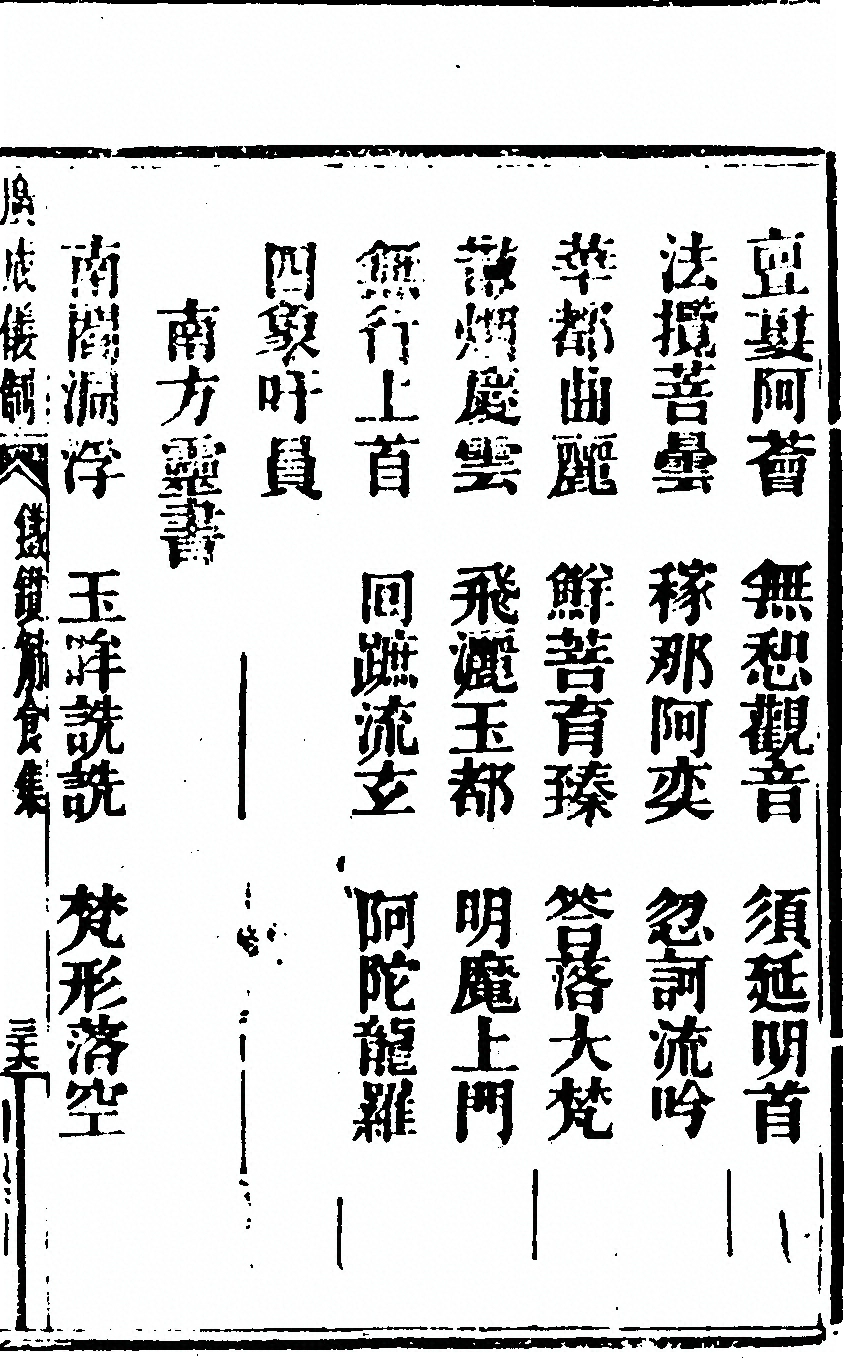 亶婁阿薈 無惒觀音 須延明首
法攬菩曇 稼那阿奕 忽訶流吟
華都曲麗 鮮菩育臻 答落大梵
散烟慶雲 飛灑玉都 明魔上門
無行上首 回蹠流玄 阿陀龍羅
四象吁員
南方靈書
南閻洞浮 玉眸詵詵 梵形落空
廣成儀制 鐵鑵斛食集 三十六